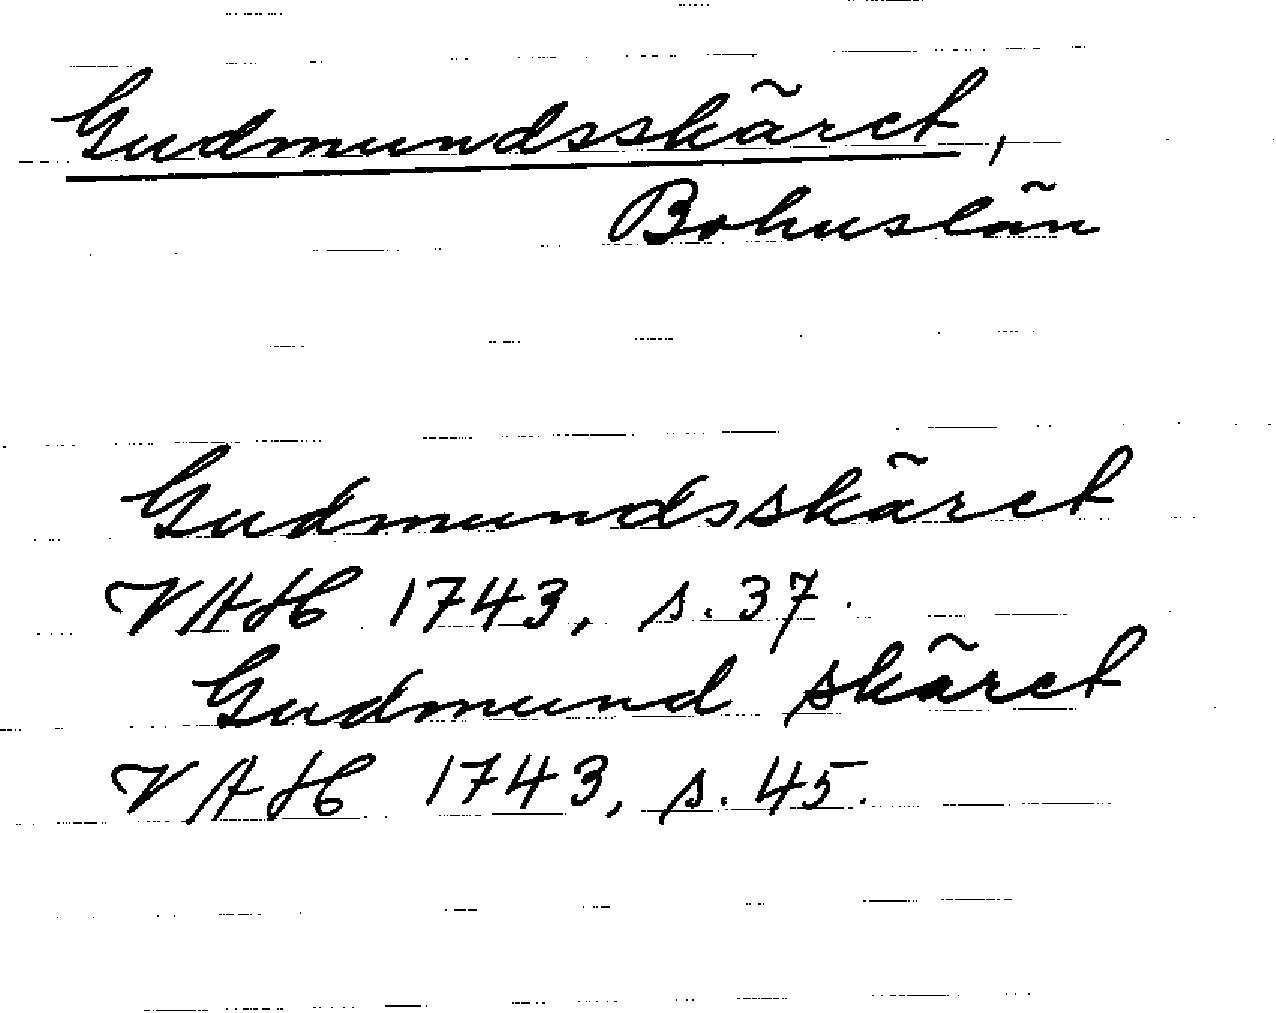 Gudmundsskäret,
Bohuslän
Gudmundsskäret
VAH 1743, s. 37.
Gudmund skäret
VAH 1743, s. 45.